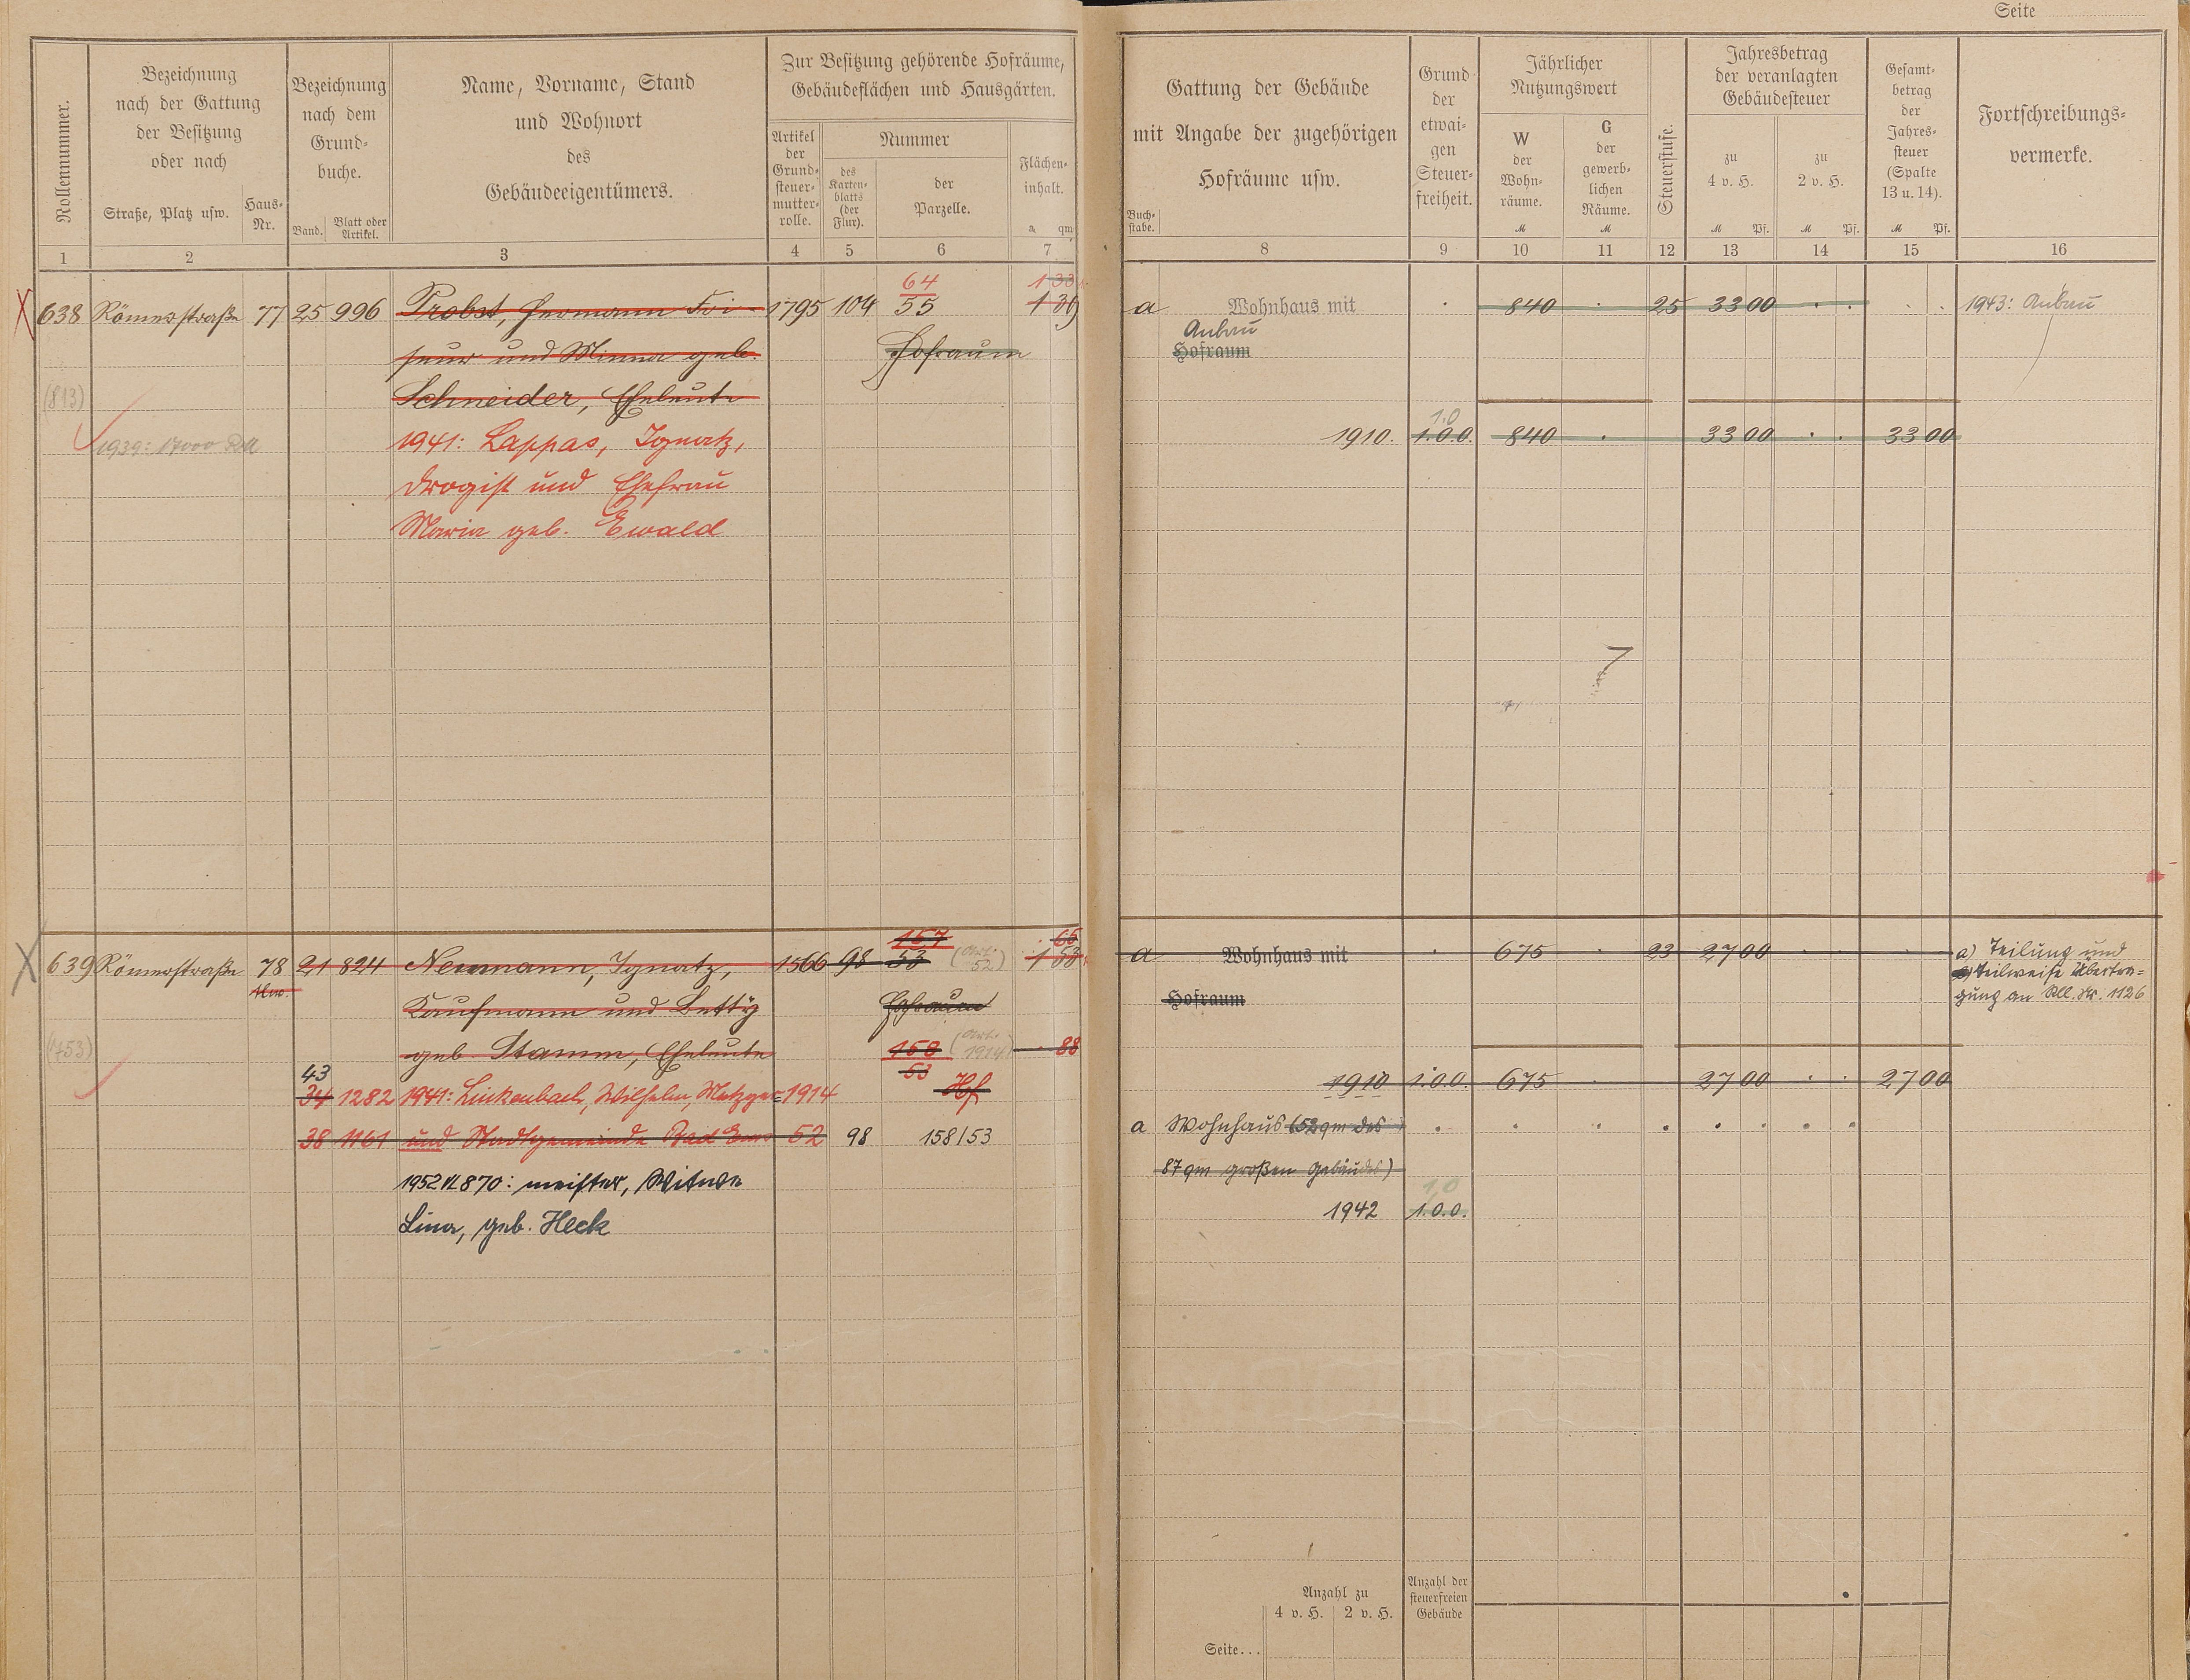 Seite
Rollennummer.
Bezeichnung
nach der Gattung
der Besitzung
oder nach
Straße, Platz usw.
Haus-
Nr.
Bezeichnung
nach dem
Grund-
buche.
Band.
Blatt oder
Artikel.
Name, Vorname, Stand
und Wohnort
des
Gebäudeeigentümers.
Zur Besitzung gehörende Hofräume,
Gebäudeflächen und Hausgärten.
Artikel
der
Grund-
steuer-
mutter-
rolle.
Nummer
des
Karten-
blatts
(der
Flur).
der
Parzelle.
Flächen-
inhalt.
a qm
Gattung der Gebäude
mit Angabe der zugehörigen
Hofräume usw.
Buch-
stabe.
Grund
der
etwai-
gen
Steuer-
freiheit.
Jährlicher
Nutzungswert
W
der
Wohn-
räume.
M
G
der
gewerb-
lichen
Räume.
M
Steuerstufe.
Jahresbetrag
der veranlagten
Gebäudesteuer
zu
4 v. H.
M Pf.
zu
2 v. H.
M Pf.
Gesamt-
betrag
der
Jahres-
steuer
(Spalte
13 u. 14).
M Pf.
Fortschreibungs-
vermerke.
1 2 3 4 5 6 7 8 9 10 11 12 13 14 15 16
64 1 33
638 Römerstraße 77 25 996 Probst, Hermann Fri- 1795 104 55 1 36 a Wohnhaus mit 840 25 33 00 1943: Anbau
Anbau
seur und Minna geb. Hofraum Hofraum
(813) Schneider, Eheleute
1.0
1939: 17000 RM 1941: Lappas, Ignatz, 1910. 1.0.0. 840 33 00 33 00
Drogist und Ehefrau
Maria geb. Ewald
157 65
639 Römerstraße 78 21 824 Neumann, Ignatz, 1566 98 53 (Art. 52) 1 53 a Wohnhaus mit 675 23 27 00 a) Teilung und
teilweise Übertra-
Kaufmann und Betty Hofraum Hofraum gung an Rll. Nr. 1126
(753) geb. Stamm, Eheleute 158 (Art. 1914) 88
43 53
34 1282 1941: Linkenbach, Wilhelm, Metzger- 1914 Hf 1910 1.0.0. 675 27 00 27 00
38 1161 und Stadtgemeinde Bad Ems 52 98 158/53 a Wohnhaus (52 qm des
87 qm großen Gebäudes)
1952 N 870: meister, Witwe
1,0
Lina, geb. Heck 1942 1.0.0.
Anzahl zu
4 v. H. 2 v. H.
Anzahl der
steuerfreien
Gebäude
Seite...